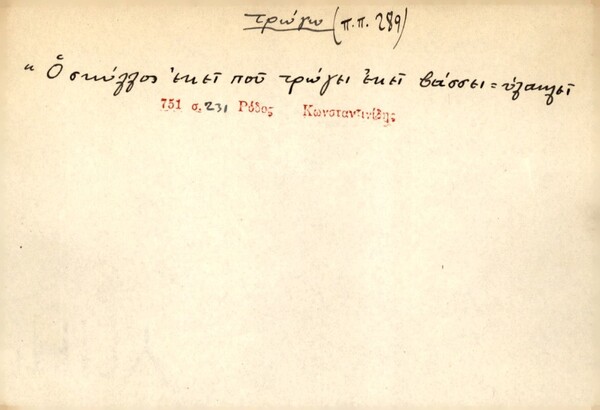 τρώγω (π.π. 289)
"Ὁ σκύλλος ἐκεῖ ποῦ τρώγει ἐκεῖ βάσσει = ὑλακτεῖ
751 σ. 231 Ρόδος Κωνσταντινίδης